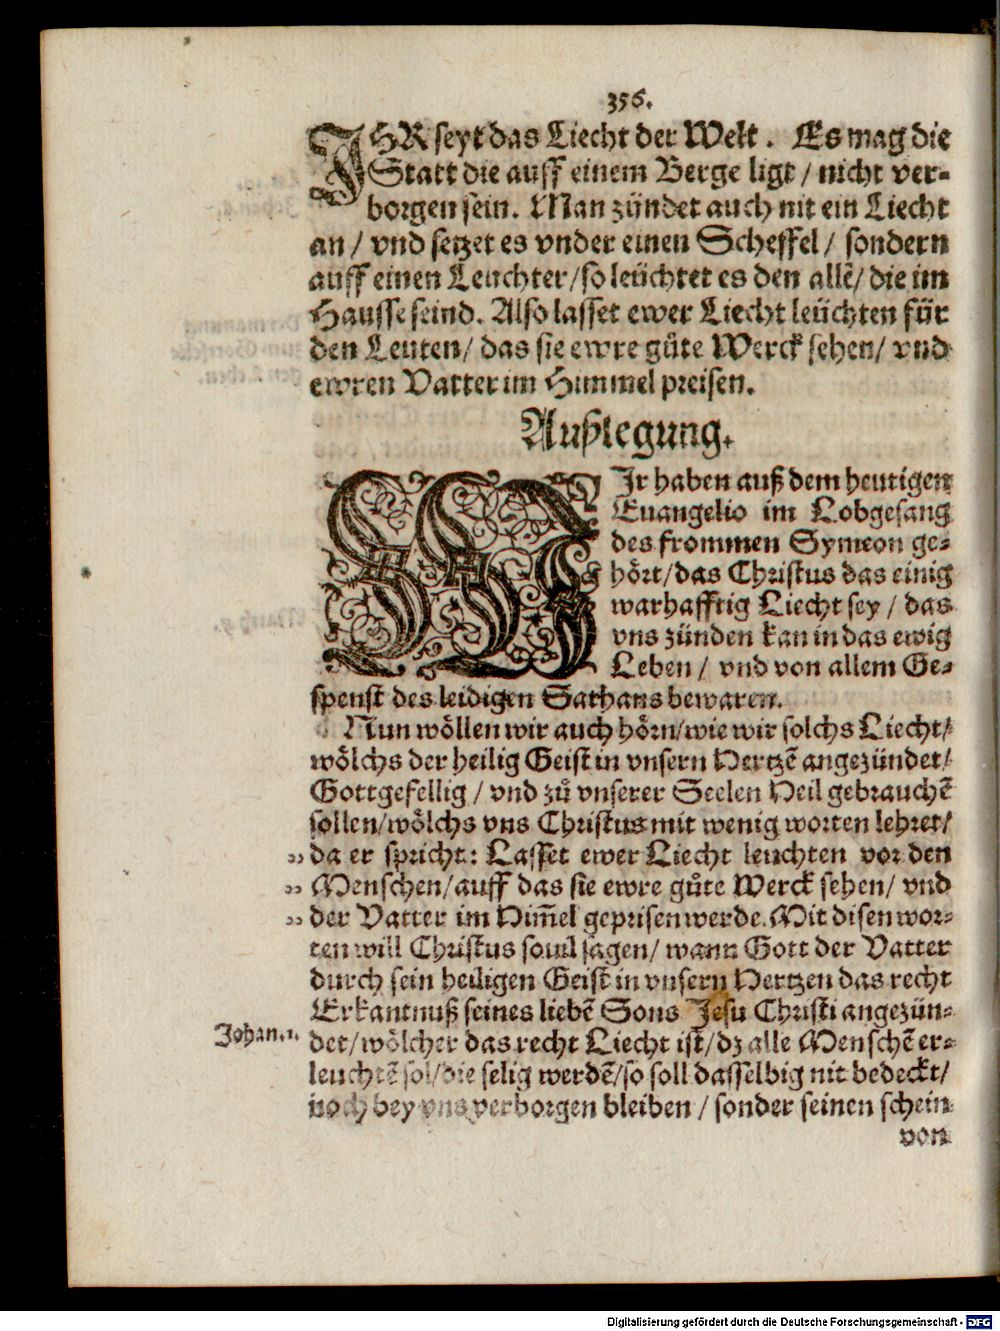 356.
IHR seyt das Liecht der Welt. Es mag die
Statt die auff einem Berge ligt / nicht ver-
borgen sein. Man zündet auch nit ein Liecht
an / vnd setzet es vnder einen Scheffel / sondern
auff einen Leuchter / so leüchtet es den allē / die im
Hausse seind. Also lasset ewer Liecht leüchten für
den Leuten / das sie ewre gůte Werck sehen / vnd
ewren Vatter im Himmel preisen.
Außlegung.
WIr haben auß dem heutigen
Euangelio im Lobgesang
des frommen Symeon ge-
hört / das Christus das einig
warhafftig Liecht sey / das
vns zünden kan in das ewig
Leben / vnd von allem Ge-
spenst des leidigen Sathans bewaren.
Nun wöllen wir auch hörn / wie wir solchs Liecht /
wölchs der heilig Geist in vnsern Hertzē angezündet /
Gottgefellig / vnd zů vnserer Seelen Heil gebrauchē
sollen / wölchs vns Christus mit wenig worten lehret /
„ da er spricht: Lasset ewer Liecht leuchten vor den
„ Menschen / auff das sie ewre gůte Werck sehen / vnd
„ der Vatter im Him̄el geprisen werde. Mit disen wor-
ten will Christus souil sagen / wann Gott der Vatter
durch sein heiligen Geist in vnsern Hertzen das recht
Erkantnuß seines liebē Sons Jesu Christi angezün-
Johan. 1. det / wölcher das recht Liecht ist / dz alle Menschē er-
leuchtē sol / die selig werdē / so soll dasselbig nit bedeckt /
noch bey vns verborgen bleiben / sonder seinen schein
von
Digitalisierung gefördert durch die Deutsche Forschungsgemeinschaft - DFG